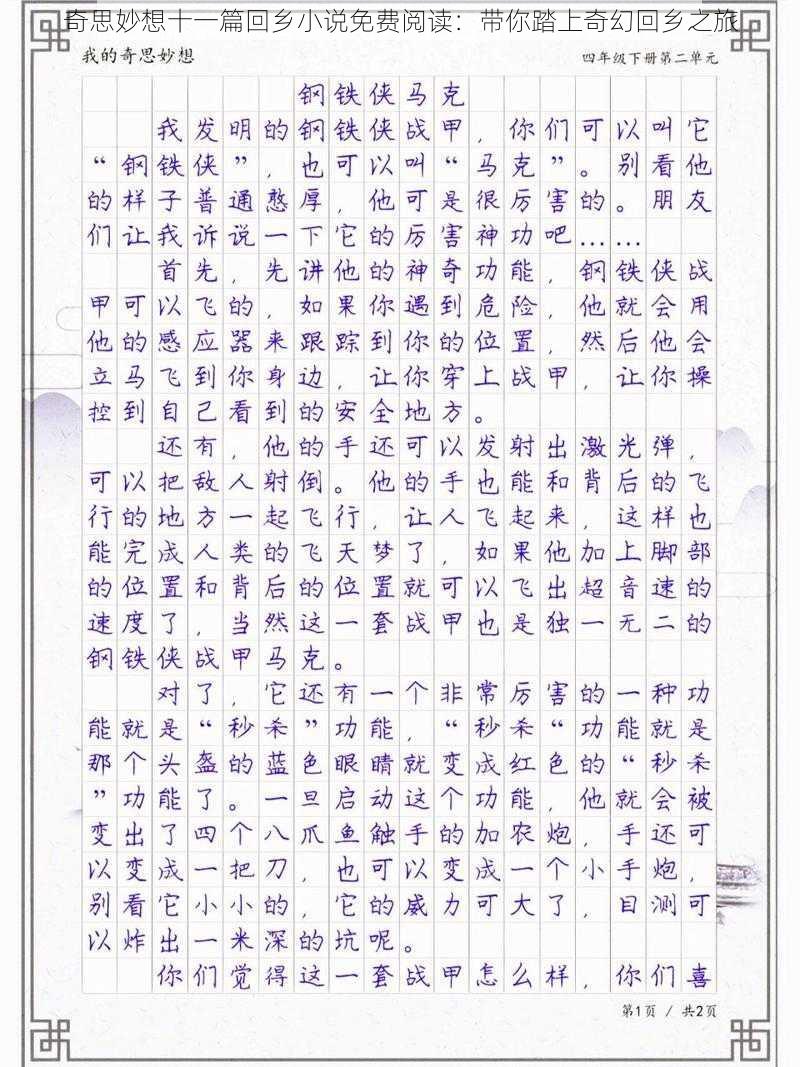 奇思妙想十一篇回乡小说免费阅读：带你踏上奇幻回乡之旅
我的奇思妙想
四年级下册第二单元
钢铁侠马克
我发明的钢铁侠战甲，你们可以叫它
“钢铁侠”，也可以叫“马克”。别看他
的样子普通憨厚，他可是很厉害的。朋友
们让我诉说一下它的厉害神功吧……
首先，先讲他的神奇功能，钢铁侠战
甲可以飞的，如果你遇到危险，他就会用
他的感应器来跟踪到你的位置，然后他会
立马飞到你身边，让你穿上战甲，让你操
控到自己看到的安全地方。
还有，他的手还可以发射出激光弹，
可以把敌人射倒。他的手也能和背后的飞
行的地方一起飞行，让人飞起来，这样也
能完成人类的飞天梦了，如果他加上脚部
的位置和背后的位置就可以飞出超音速的
速度了，当然这一套战甲也是独一无二的
钢铁侠战甲马克。
对了，它还有一个非常厉害的一种功
能就是“秒杀”功能，“秒杀“功能就是
那个头盔的蓝色眼睛就变成红色的“秒杀
”功能了。一旦启动这个功能，他就会被
变出了四个八爪鱼触手的加农炮，手还可
以变成一把刀，也可以变成一个小手炮，
别看它小小的，它的威力可大了，目测可
以炸出一米深的坑呢。
你们觉得这一套战甲怎么样，你们喜
第1页 / 共2页